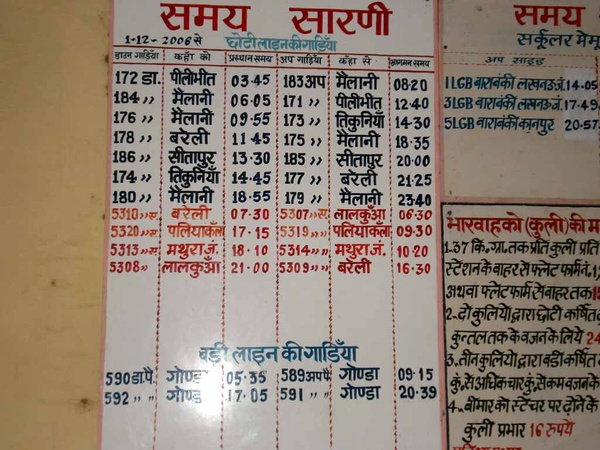 समय सारणी
1-12-2006 से छोटी लाइन की गाड़ियां
डाउन गाड़ियां कहाँ को प्रस्थान समय अप गाड़ियां कहा से आगमन समय
172 डा. पीलीभीत 03.45 183 अप मैलानी 08.20
184 ,, मैलानी 06.05 171 ,, पीलीभीत 12.40
176 ,, मैलानी 09.55 173 ,, तिकुनियाँ 14.30
178 ,, बरेली 11.45 175 ,, मैलानी 18.35
186 ,, सीतापुर 13.30 185 ,, सीतापुर 20.00
174 ,, तिकुनियाँ 14.45 177 ,, बरेली 21.25
180 ,, मैलानी 18.55 179 ,, मैलानी 23.40
5310 ,, स. बरेली 07.30 5307 ,, स. लालकुआँ 06.30
5320 ,, स. पलियाकलाँ 17.15 5319 ,, पलियाकलाँ 09.30
5313 ,, स. मथुरा जं. 18.10 5314 ,, मथुरा जं. 10.20
5308 ,, लालकुआँ 21.00 5309 ,, बरेली 16.30
बड़ी लाइन की गाड़ियाँ
590 डा.पै. गोण्डा 05.35 589 अप पै. गोण्डा 09.15
592 ,, ,, गोण्डा 17.05 591 ,, ,, गोण्डा 20.39
समय
सर्कुलर मेमू
अप साइड
1LGB बाराबंकी लखनऊ जं. 14.05
3LGB बाराबंकी लखनऊ जं. 17.49
5LGB बाराबंकी कानपुर 20.57
भारवाहको (कुली) की
1. 37 कि. ग्रा. तक प्रति कुली प्रति
स्टेशन के बाहर से प्लेट फार्म नं. 1,
अथवा प्लेटफार्म से बाहर तक
2. दो कुलियो द्वारा छोटी कर्षित
कुन्तल तक के वजन के लिये 24
3. तीन कुलियो द्वारा बडी कर्षित
कुं. से अधिक चार कुं. से कम वजन के
4. बीमार को स्टेचर पर ढोने के
कुली प्रभार 16 रुपये